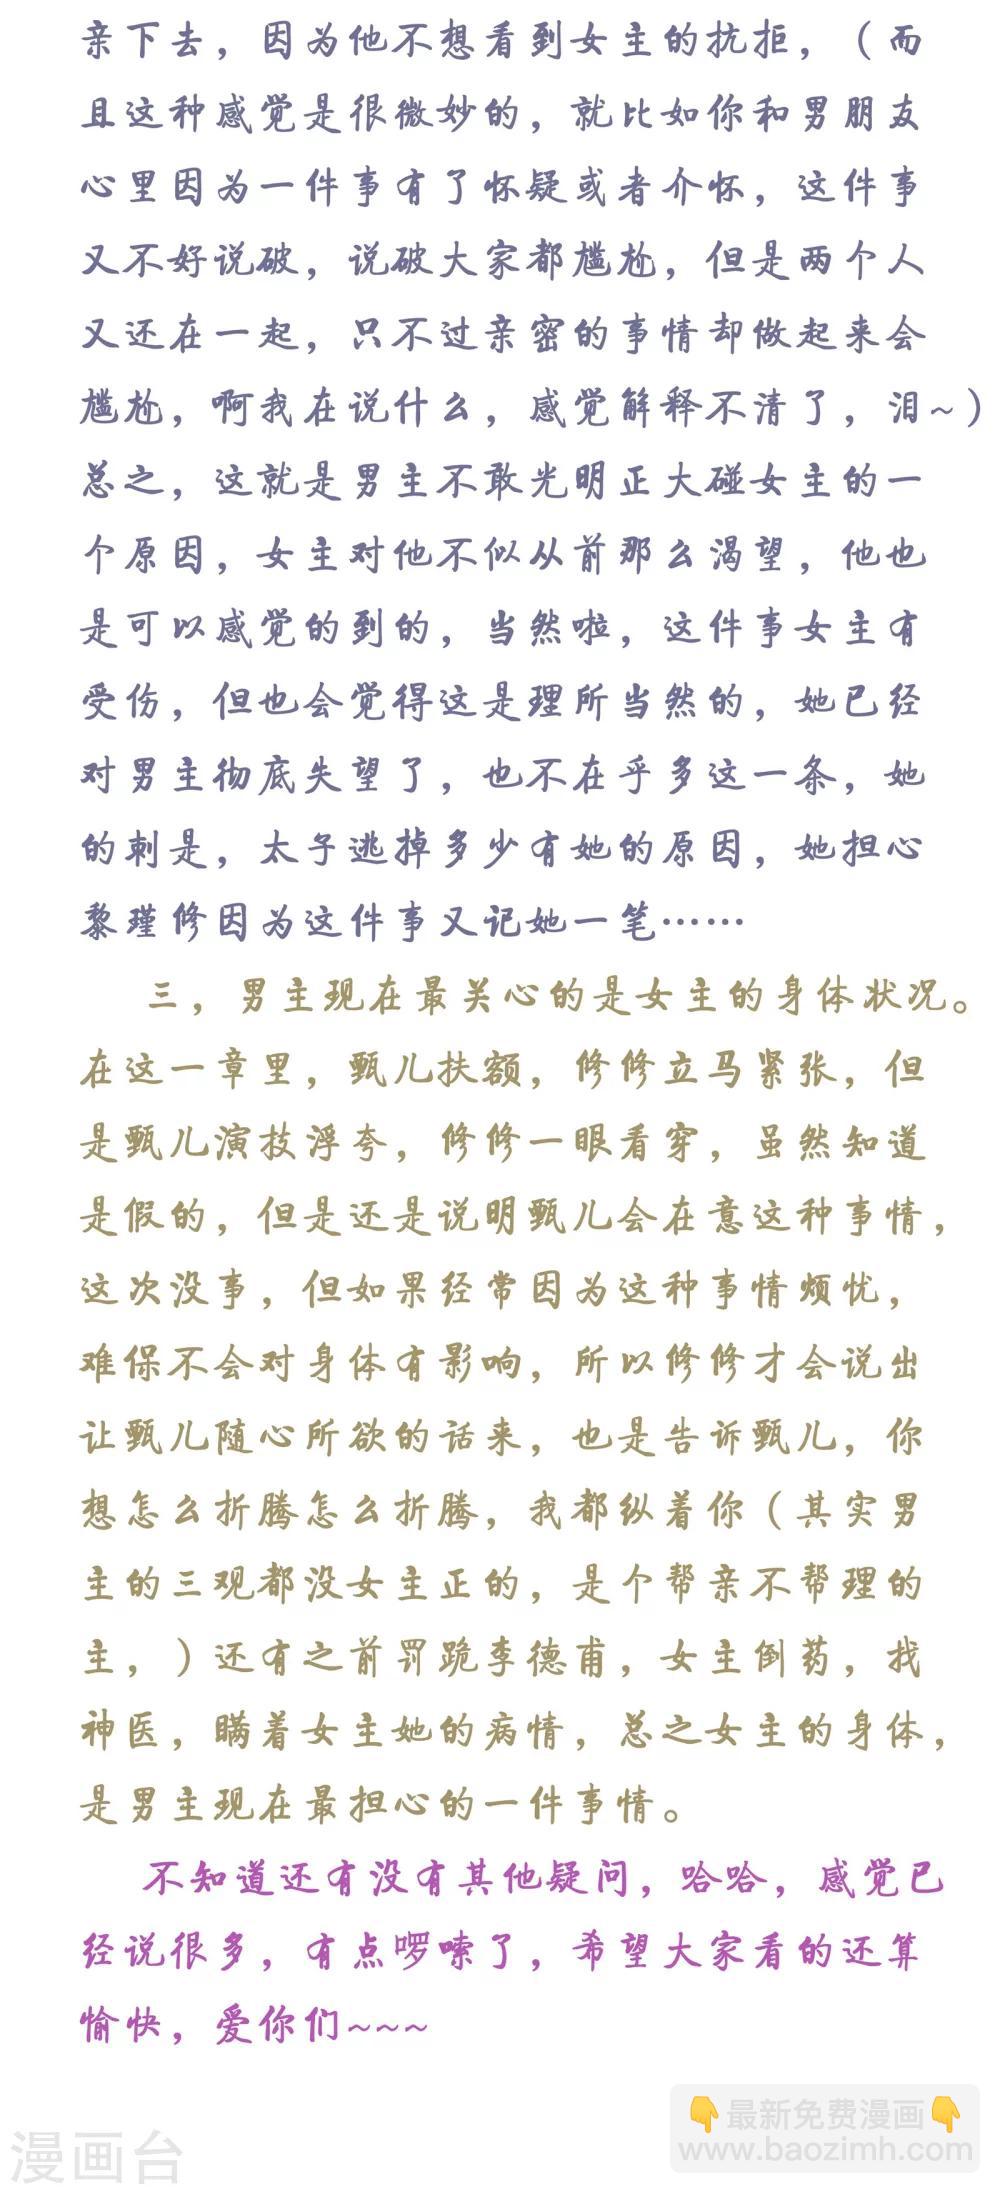 亲下去，因为他不想看到女主的抗拒，（而
且这种感觉是很微妙的，就比如你和男朋友
心里因为一件事有了怀疑或者介怀，这件事
又不好说破，说破大家都尴尬，但是两个人
又还在一起，只不过亲密的事情却做起来会
尴尬，啊我在说什么，感觉解释不清了，泪~）
总之，这就是男主不敢光明正大碰女主的一
个原因，女主对他不似从前那么渴望，他也
是可以感觉的到的，当然啦，这件事女主有
受伤，但也会觉得这是理所当然的，她已经
对男主彻底失望了，也不在乎多这一条，她
的刺是，太子逃掉多少有她的原因，她担心
黎瑾修因为这件事又记她一笔……
三，男主现在最关心的是女主的身体状况。
在这一章里，甄儿扶额，修修立马紧张，但
是甄儿演技浮夸，修修一眼看穿，虽然知道
是假的，但是还是说明甄儿会在意这种事情，
这次没事，但如果经常因为这种事情烦忧，
难保不会对身体有影响，所以修修才会说出
让甄儿随心所欲的话来，也是告诉甄儿，你
想怎么折腾怎么折腾，我都纵着你（其实男
主的三观都没女主正的，是个帮亲不帮理的
主，）还有之前罚跪李德甫，女主倒药，找
神医，瞒着女主她的病情，总之女主的身体，
是男主现在最担心的一件事情。
不知道还有没有其他疑问，哈哈，感觉已
经说很多，有点啰嗦了，希望大家看的还算
愉快，爱你们~~~
👇最新免费漫画👇
www.baozimh.com
漫画台